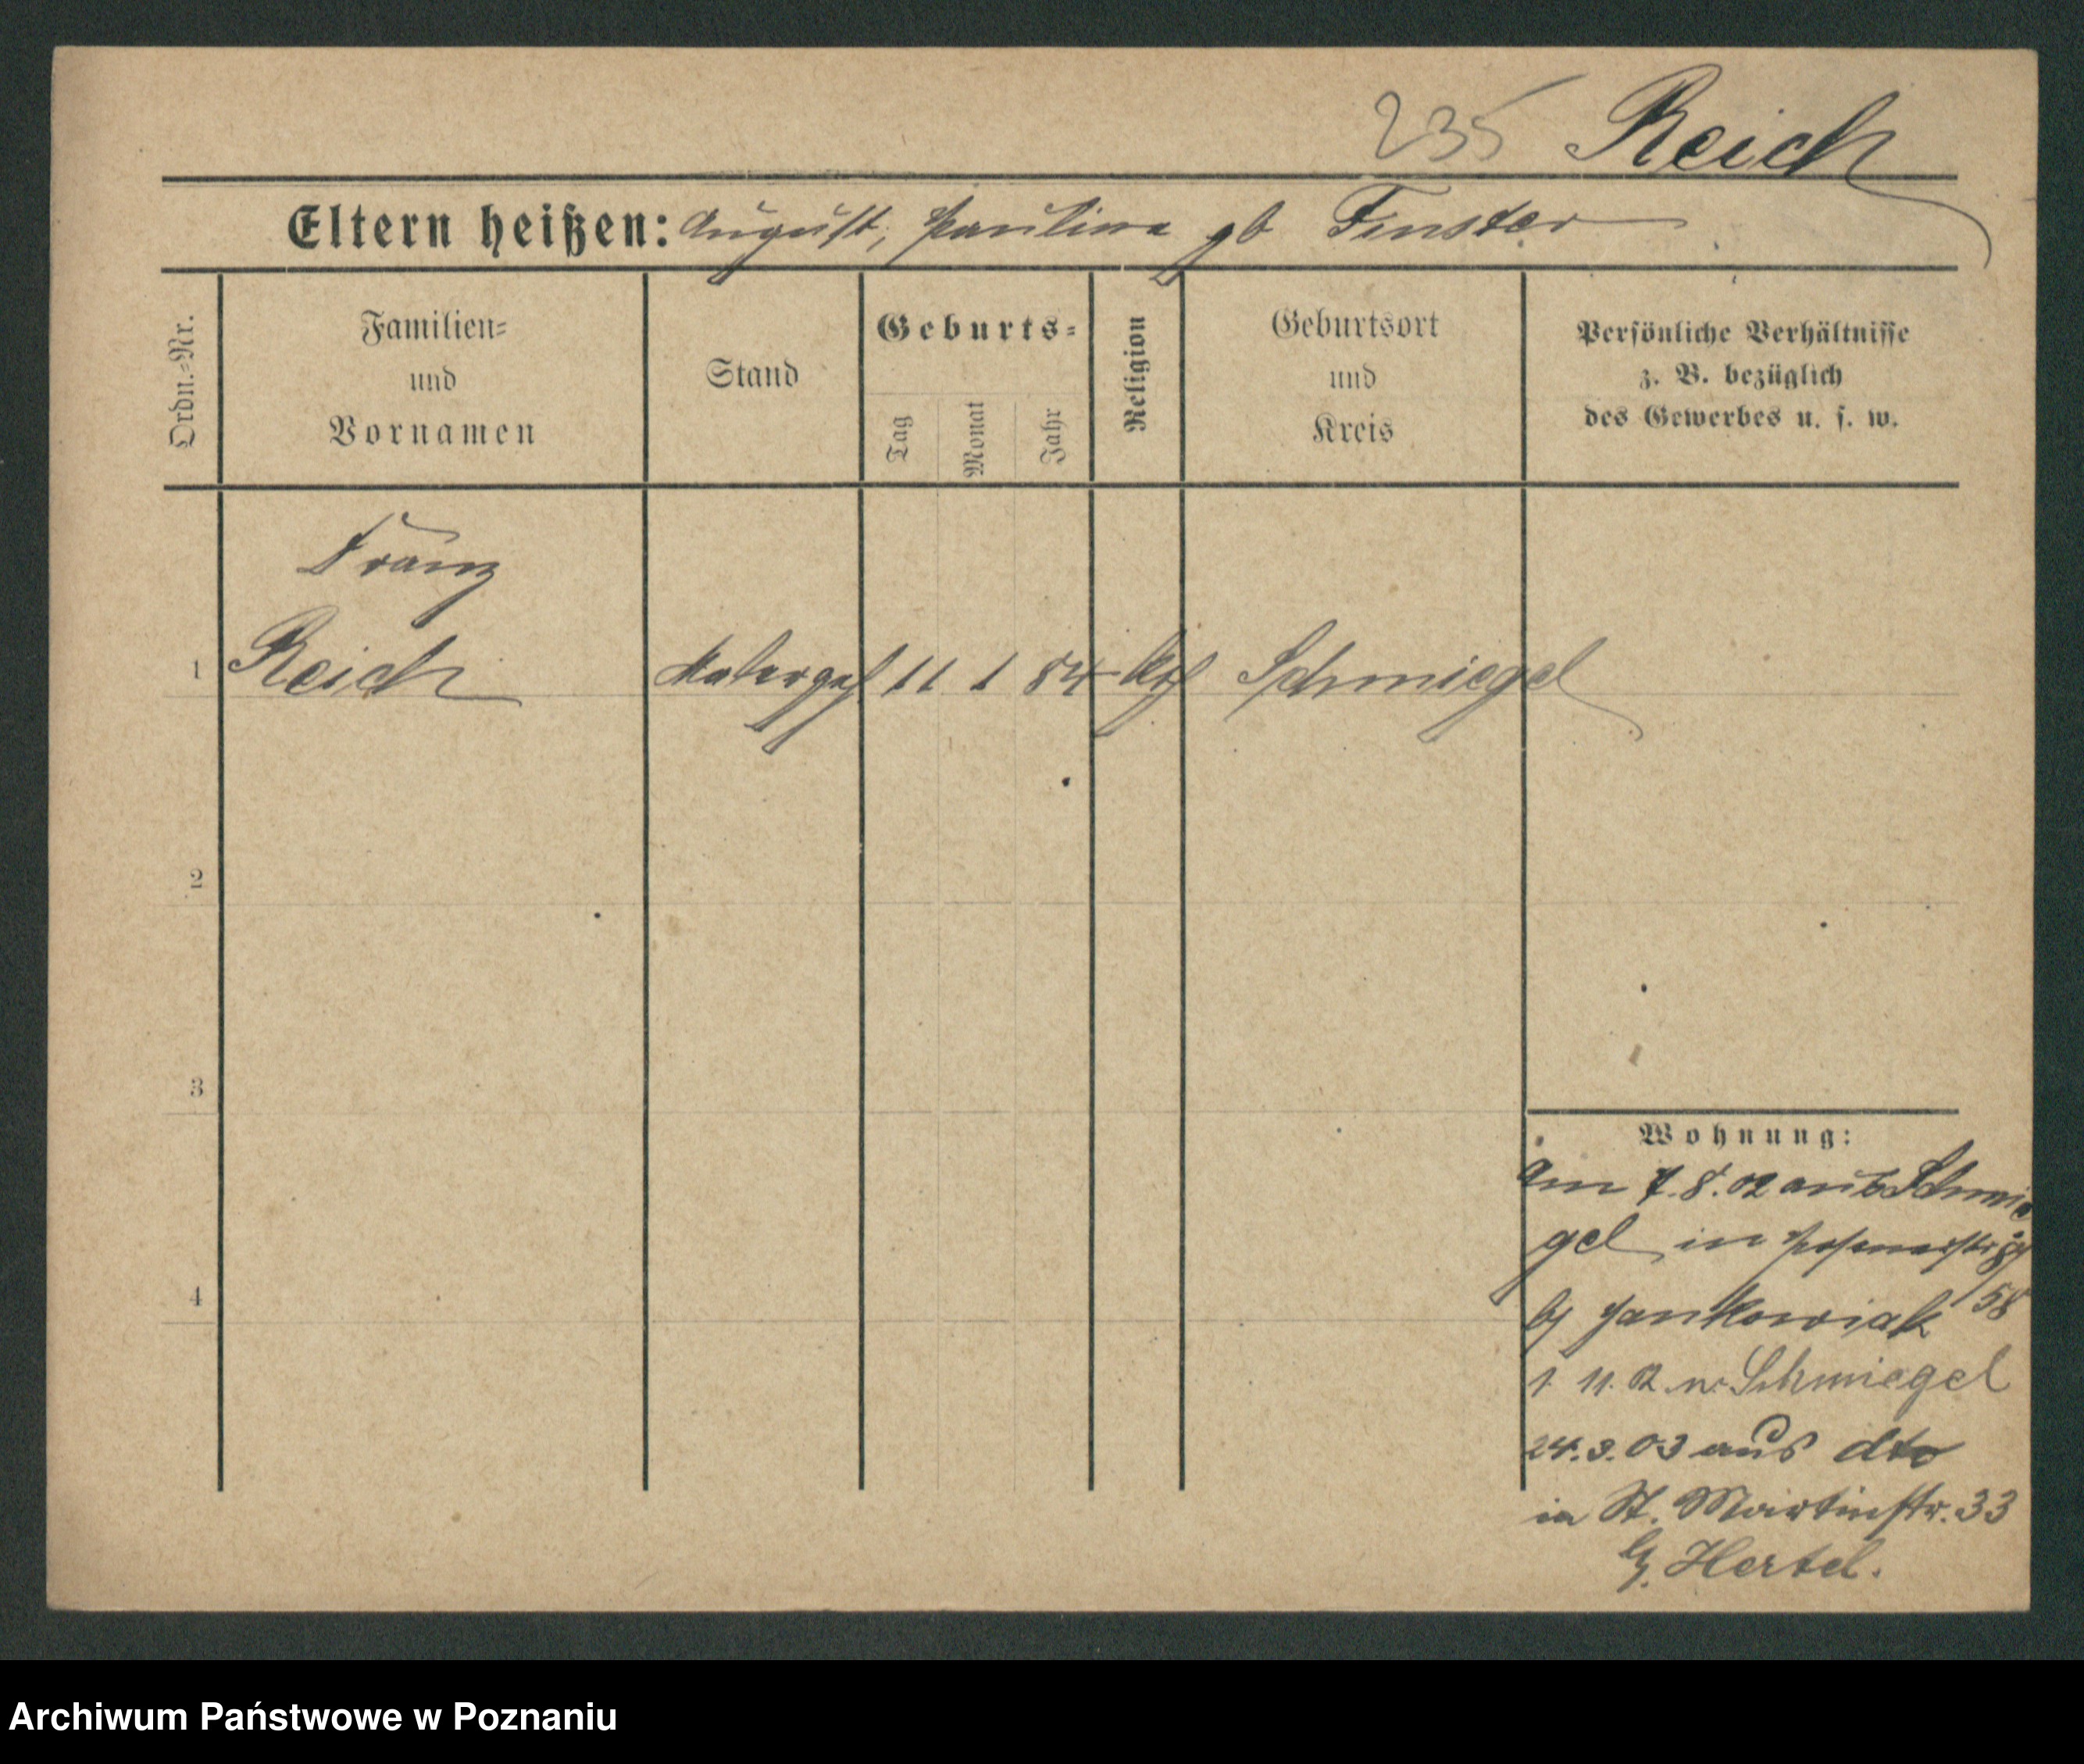 235 Reich
Eltern heißen: August, Paulina gb Finster
Ordn.-Nr.
Familien-
und
Vornamen
Stand
Geburts-
Tag
Monat
Jahr
Religion
Geburtsort
und
Kreis
Persönliche Verhältnisse
z. B. bezüglich
des Gewerbes u. s. w.
Franz
1 Reich Malergeh 11 1 84 Schmiegel
2
3
4
Wohnung:
Am 7.8.02 aus Schmie
gel in
bj Jankowiak 58
1. 11. 02 n. Schmiegel
24.3.03 aus dto
in St. Martinstr. 33
bj. Hertel.
Archiwum Państwowe w Poznaniu